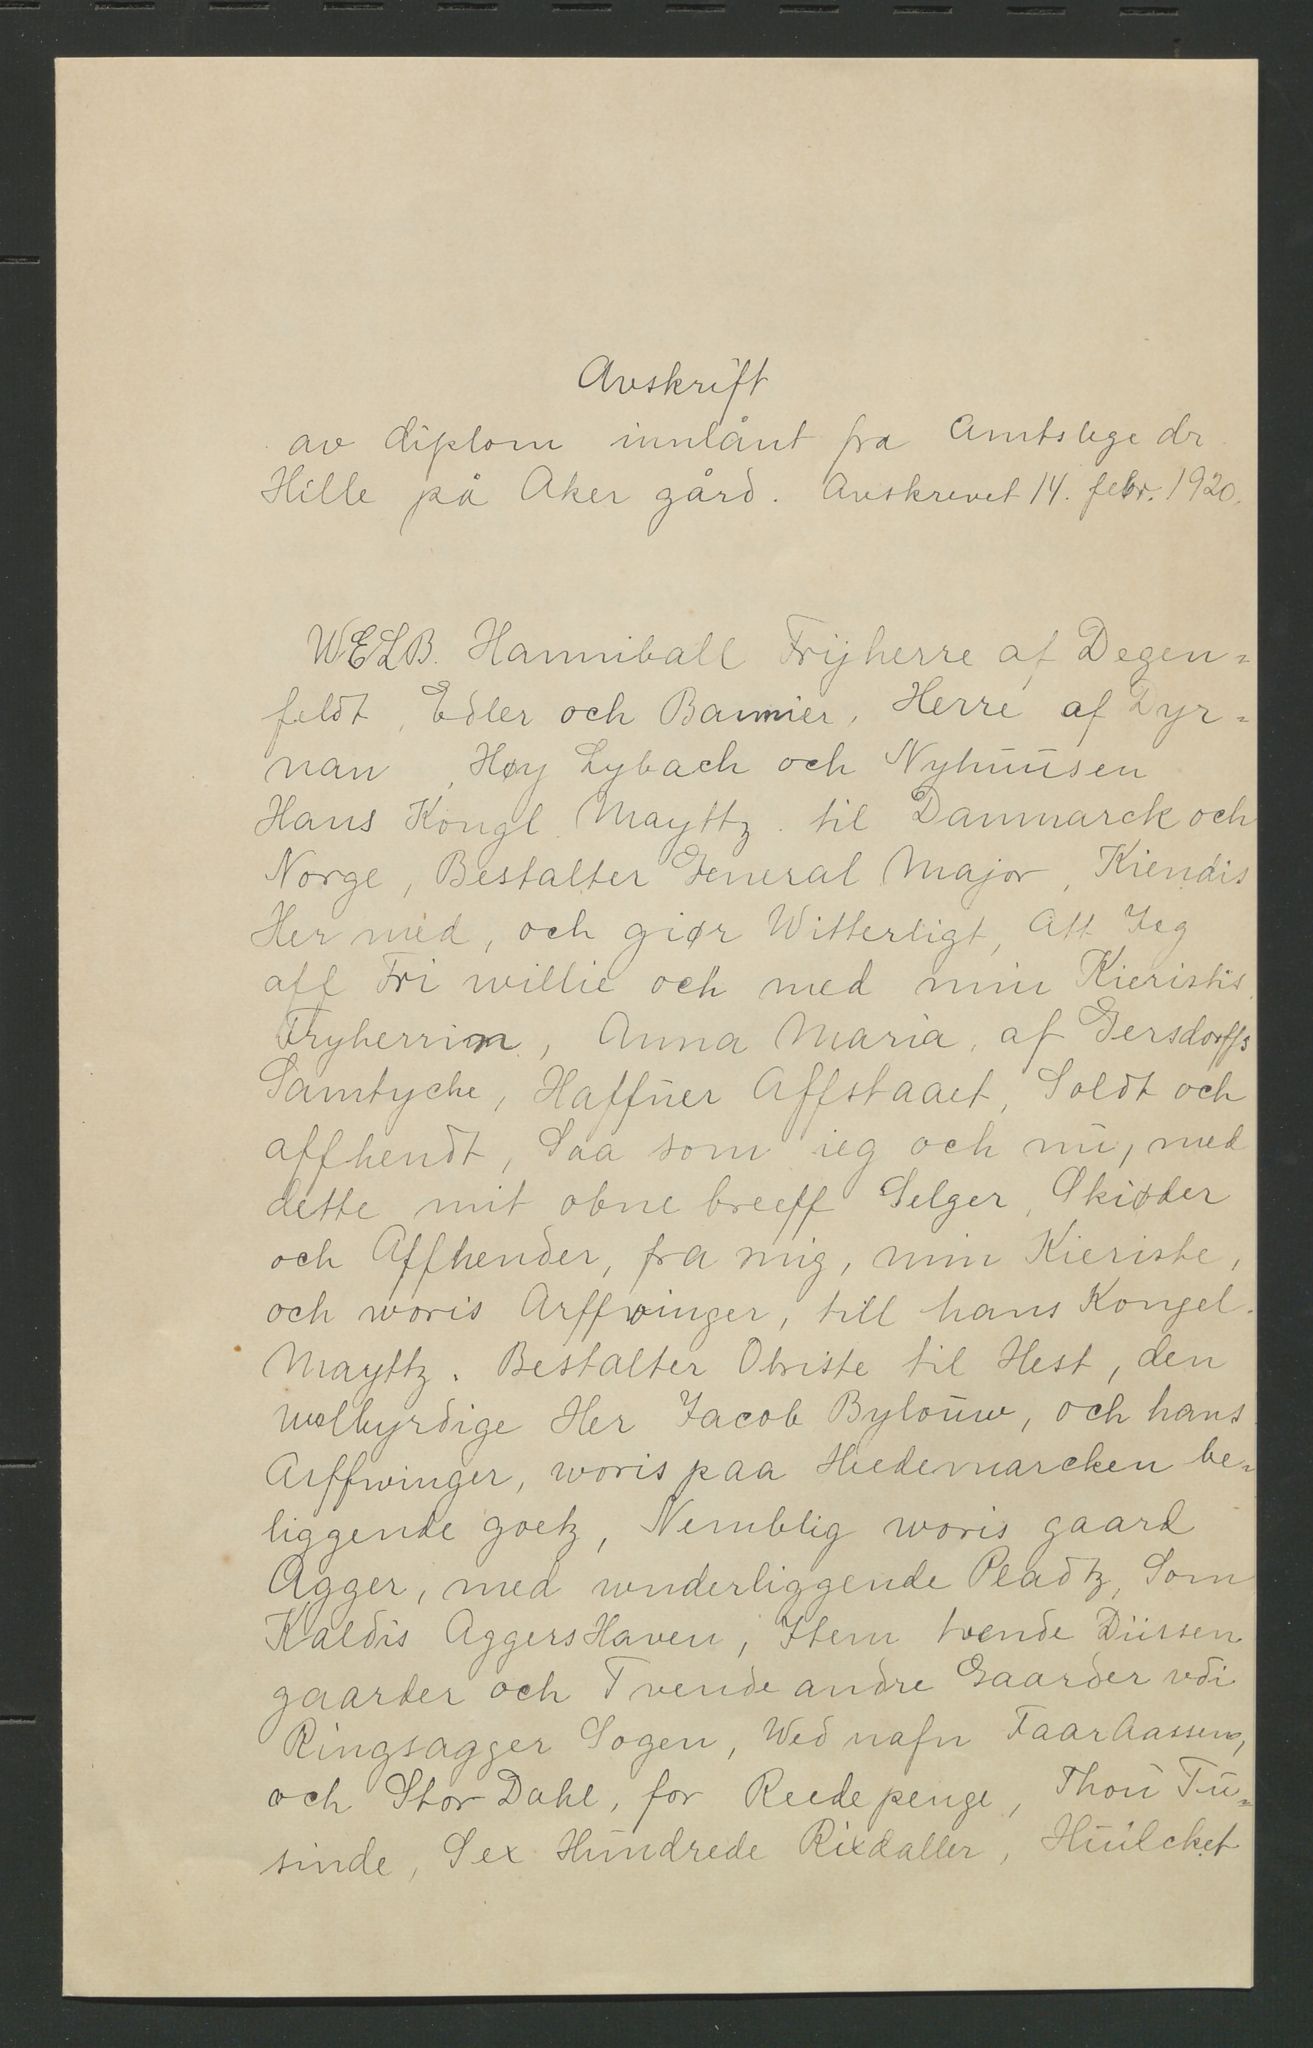 Avskrift
av diplom innlånt fra Amtslege dr.
Hille på Aker gård. Avskrevet 14. febr. 1920.
WELB. Hanniball Frijherre af Degen=
feldt, Edler och Bannier, Herre af Dyr=
nan, Høy Lybach och Nyhuusen
Hans Kongl. Mayttz. til Danmarck och
Norge, Bestalter General Major, Kiendis
Her med, och giør Witterligt, Att Jeg
aff Fri willie och med min Kieristis
Fryherrinn, Anna Maria, af Gersdorffs
Samtyche, Haffuer Affstaaet, Soldt och
affhendt, Saa som ieg och nu, med
dette mit obne breeff Selger, Skiøder
och Affhender, fra mig, min Kieriste,
och woris Arffwinger, till hans Kongel.
Mayttz. Bestalter Obriste til Hest, den
welbyrdige Her Jacob Bylouw, och hans
Arffwinger, woris paa Heedemarcken be=
liggende goetz, Nemblig woris gaard
Agger, med wnderliggende Pladtz, Som
Kaldis AggersHaven, Item tvende Diissen
gaarder och Tvende andre Gaarder vdi
Ringsagger Sogen, Wed nafn FaarAassen,
och Stor Dahl, for Reede penge, Thou Tu=
sinde, Sex Hundrede Rixdaller, Huilcket